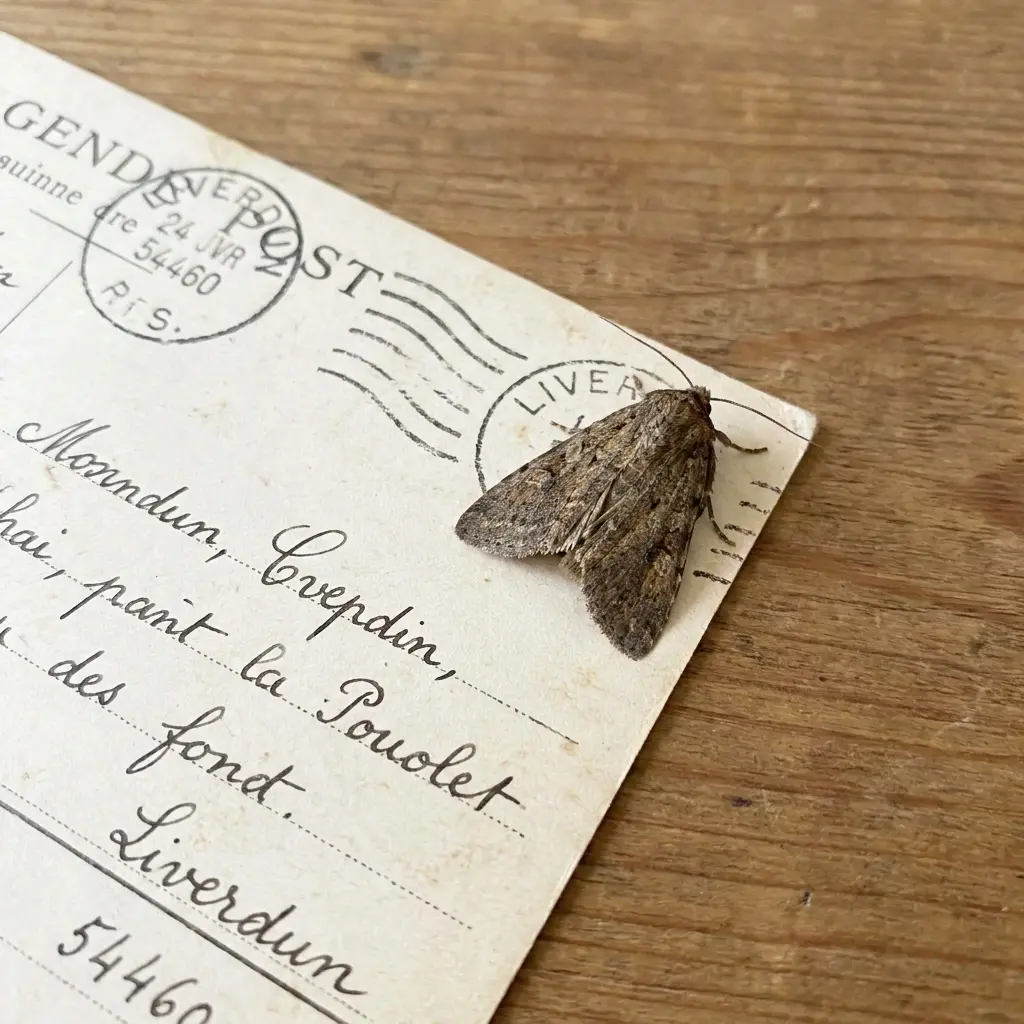 GENDE POST
quinne dre
LIVERDUN
24 JVR
54460
RIS.
LIVER
Mosnndun, Cvepdin,
hai, panit la Pouolet
des fondt.
Liverdun
54460